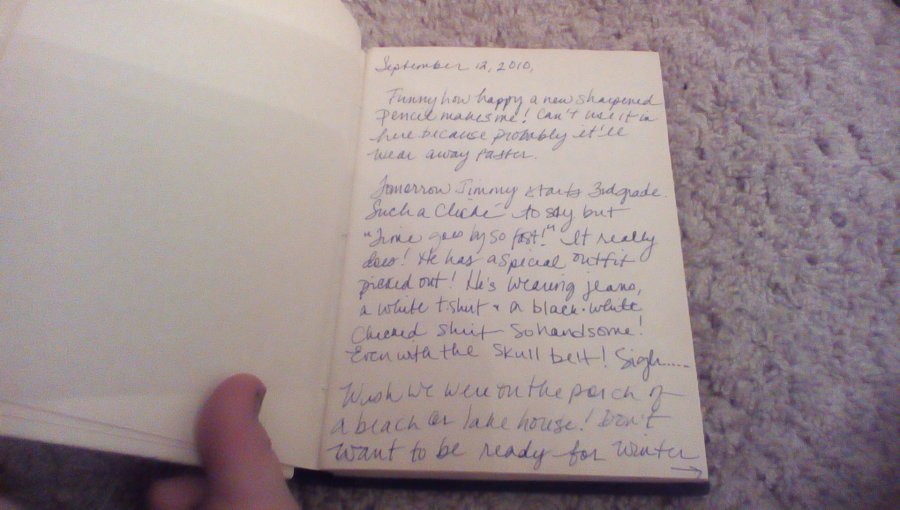 September 12, 2010.
Funny how happy a new sharpened
pencil makes me! Can't use it in
here because probably it'll
wear away faster.
Tomorrow Jimmy starts 3rd grade.
Such a Cliché to say but
"Time goes by so fast!" It really
does! He has a special outfit
picked out! He's wearing jeans,
a white t-shirt & a black + white
Checked shirt So handsome!
Even with the skull belt! Sigh.....
Wish we were on the porch of
a beach or lake house! Don't
want to be ready for winter
→